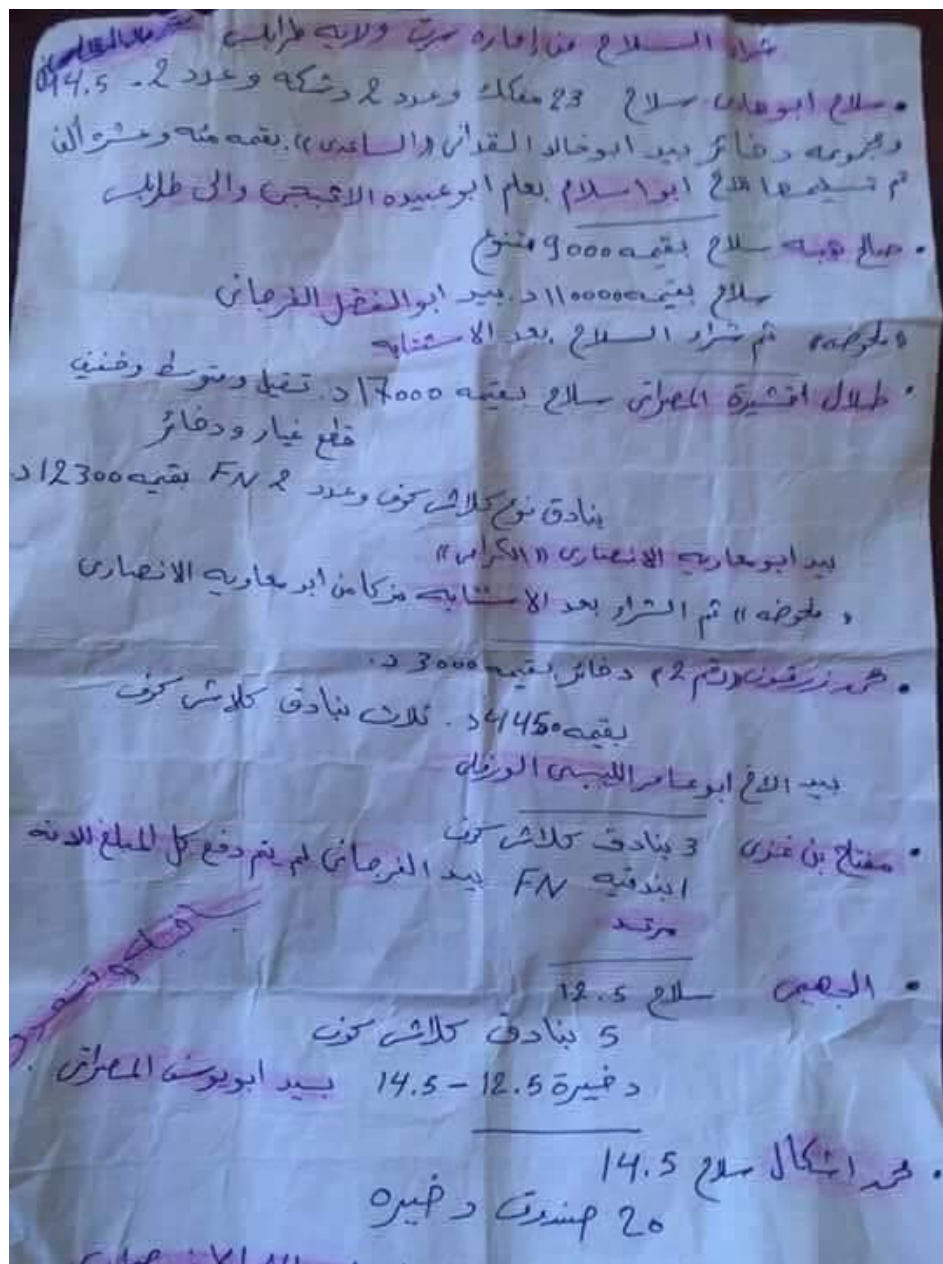 شراء السلاح من إمارة سرت ولاية طرابلس
• سلاح ابوهادي سلاح 23 مفكك وعدد 2 دشكه وعدد 2 - 14.5
ومجموعه دخائر بيد ابوخالد القداني (الساعدي)، بقيمه مئه وعشره ألف
تم تسليمها للاخ ابواسلام بعلم ابوعبيده والي طرابلس
• صالح هبه سلاح بقيمه 9000 متنوع
سلاح بقيمه 110000 د. بيد ابوالفضل الفرجاني
«ملحوضه» تم شراء السلاح بعد الاستتابه
• طلال افشيرة المصراتي سلاح بقيمه 17000 د. تقيل ومتوسط وخفيف
قطع غيار ودخائر
بنادق نوع كلاش كوف وعدد 2 FN بقيمه 12300 د
بيد ابومعاويه الانصاري «الكرامي»
«ملحوضه» تم الشراء بعد الاستتابه مزكا من ابو معاويه الانصاري
• محمد زرقون (رقم 2) دخائر بقيمه 3000 د.
بقيمه 4450 د. ثلاث بنادق كلاش كوف
بيد الاخ ابوعامر الليبي الورفلي
• مفتاح بن غزي 3 بنادق كلاش كوف
1 بندقيه FN بيد الفرجاني لم يتم دفع كل المبلغ لانه
مرتد
• سلاح 12.5
5 بنادق كلاش كوف
دخيرة 12.5 - 14.5 بيد ابويوسف المصراتي
• محمد اشكال سلاح 14.5
20 صندوق دخيره